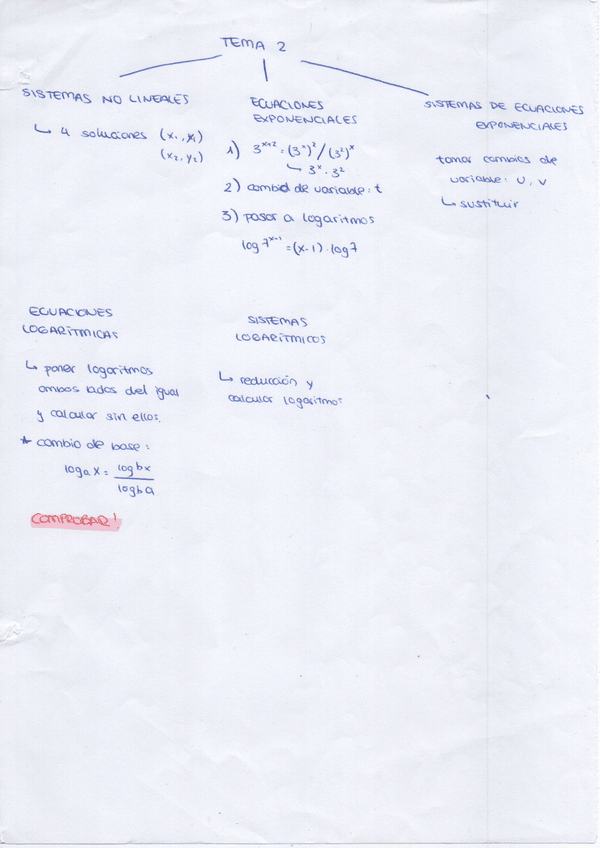 TEMA 2
SISTEMAS NO LINEALES
↳ 4 soluciones (x₁, y₁)
(x₂, y₂)
ECUACIONES
EXPONENCIALES
1) 3ˣ⁺² = (3ˣ)² / (3²)ˣ
↳ 3ˣ · 3²
2) cambio de variable: t
3) pasar a logaritmos
log 7ˣ⁻¹ = (x-1) · log 7
SISTEMAS DE ECUACIONES
EXPONENCIALES
tomar cambios de
variable: u, v
↳ sustituir
ECUACIONES
LOGARÍTMICAS
↳ poner logaritmos
ambos lados del igual
y calcular sin ellos.
* cambio de base:
logₐ x = log_b x / log_b a
COMPROBAR!
SISTEMAS
LOGARÍTMICOS
↳ reducción y
calcular logaritmos